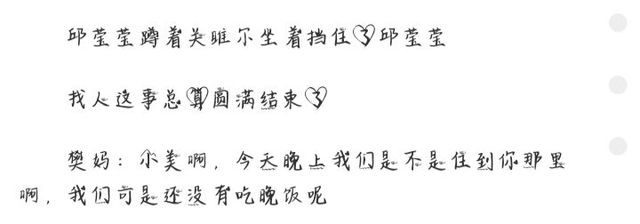 邱莹莹蹲着关雎尔坐着挡住了邱莹莹
找人这事总算圆满结束了
樊妈：小美啊，今天晚上我们是不是住到你那里
啊，我们可是还没有吃晚饭呢